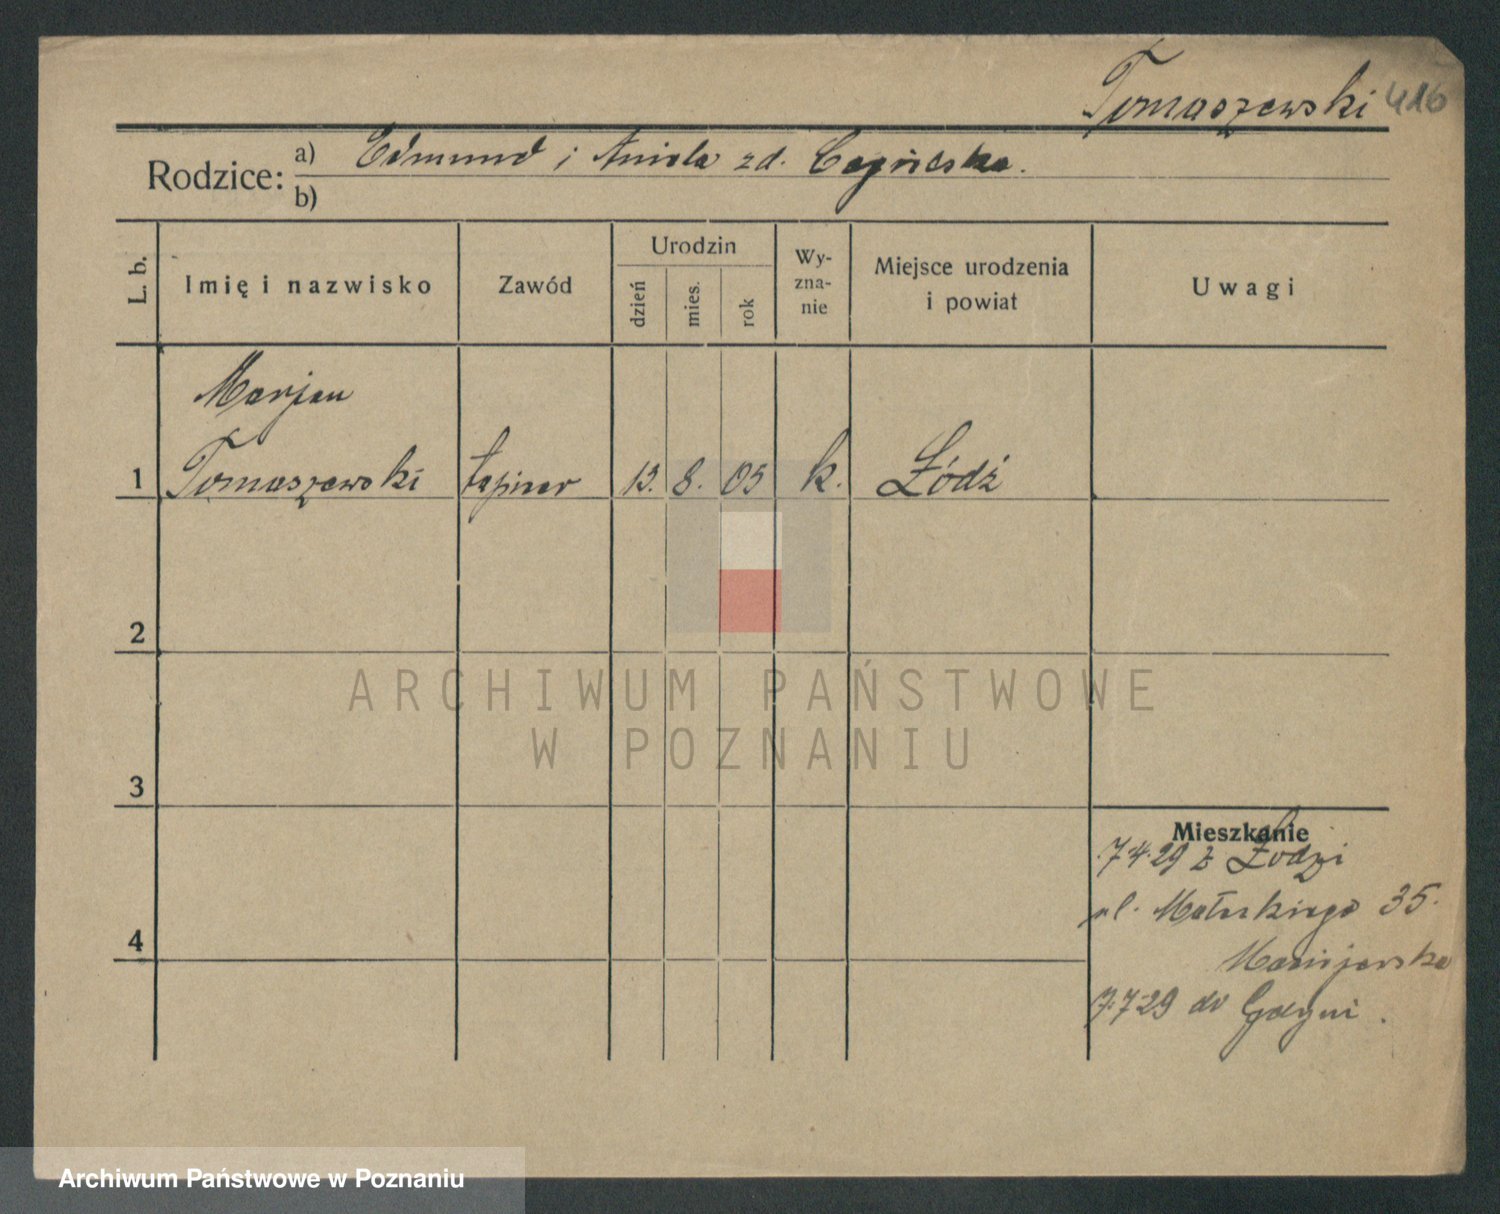 Tomaszewski 416
Rodzice: a) Edmund i Aniela zd.
b)
L. b.
Imię i nazwisko
Zawód
Urodzin
dzień
mies.
rok
Wy-
zna-
nie
Miejsce urodzenia
i powiat
Uwagi
Marjan
1 Tomaszewski tapicer 13. 8. 05 k. Łódź
2
3
4
Mieszkanie
7.4.29 z Łodzi
ul. 35.
7.7.29 do Gdyni.
ARCHIWUM PAŃSTWOWE
W POZNANIU
Archiwum Państwowe w Poznaniu